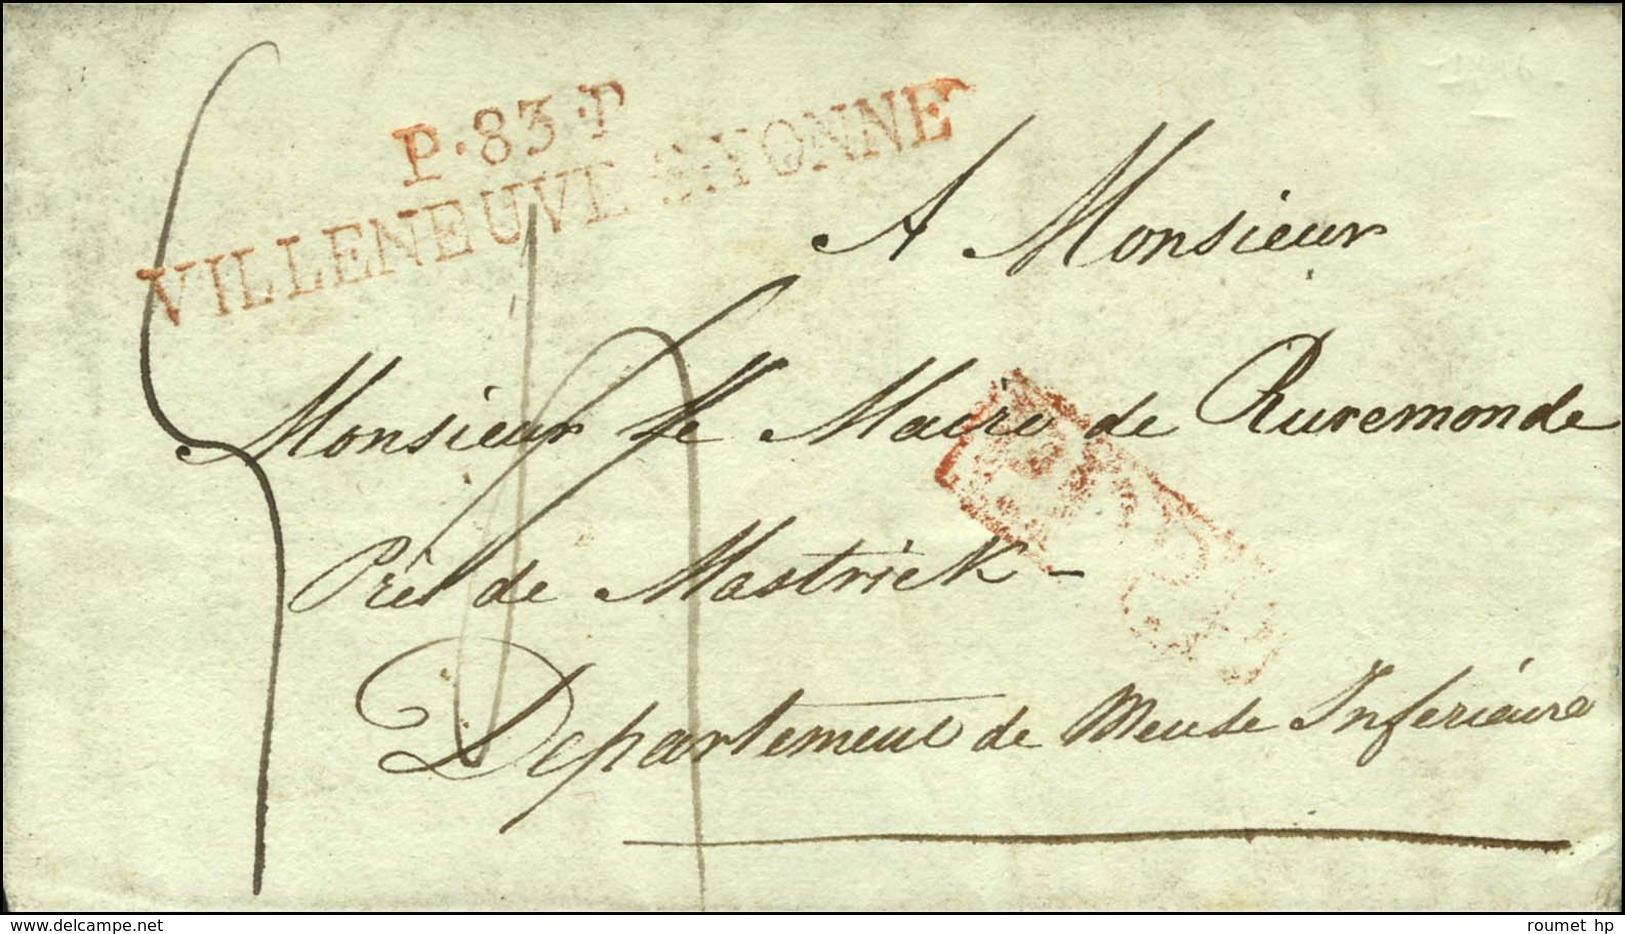 P.83.P
VILLENEUVE S.YONNE
A Monsieur
Monsieur le Maire de Ruremonde
Près de Mastrick
Departement de Meuse Inferieure
delcampe.net
roumet hp